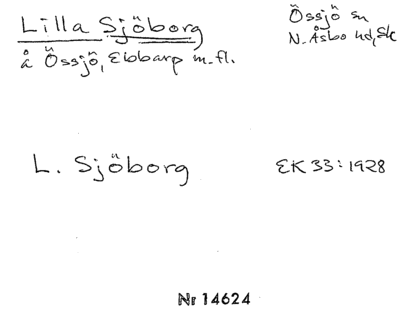 Lilla Sjöborg
å Össjö, Ebbarp m.fl.
Össjö sn
N. Åsbo hd, Sk
L. Sjöborg
EK 33:1928
Nr 14624